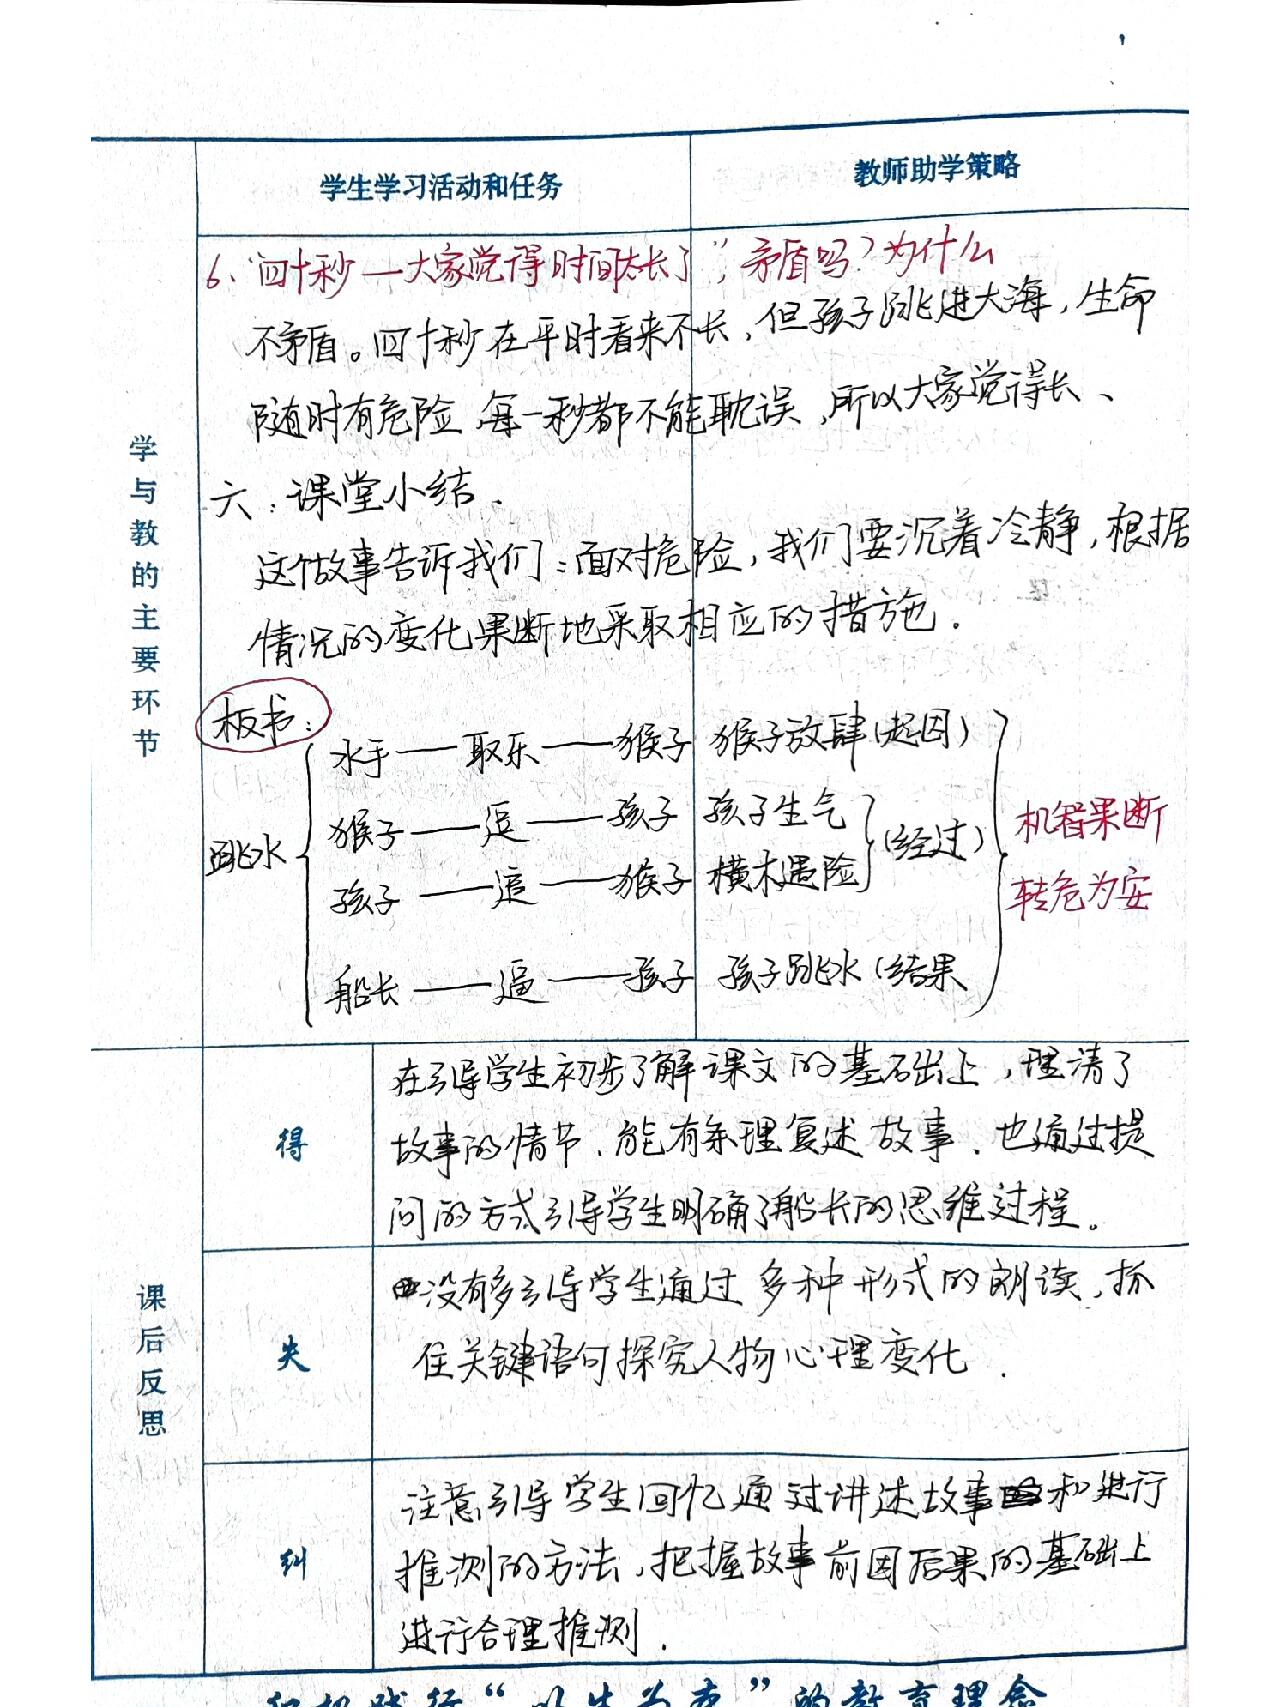 学生学习活动和任务 教师助学策略
学与教的主要环节
6、“四十秒—大家觉得时间太长了”，矛盾吗？为什么
不矛盾。四十秒在平时看来不长，但孩子跳进大海，生命
随时有危险，每一秒都不能耽误，所以大家觉得长、
六：课堂小结.
这个故事告诉我们：面对危险，我们要沉着冷静，根据
情况的变化果断地采取相应的措施.
板书：
跳水
水手——取乐——猴子 猴子放肆（起因）
猴子——逗——孩子 孩子生气
孩子——追——猴子 横木遇险 （经过）
船长——逼——孩子 孩子跳水（结果
机智果断
转危为安
课后反思
得
在引导学生初步了解课文的基础上，理清了
故事的情节、能有条理复述故事.也通过提
问的方式引导学生明确了船长的思维过程。
失
没有多引导学生通过多种形式的朗读、抓
住关键语句探究人物心理变化.
纠
注意引导学生回忆通过讲述故事和进行
推测的方法，把握故事前因后果的基础上
进行合理推测.
积极践行“以生为本”的教育理念